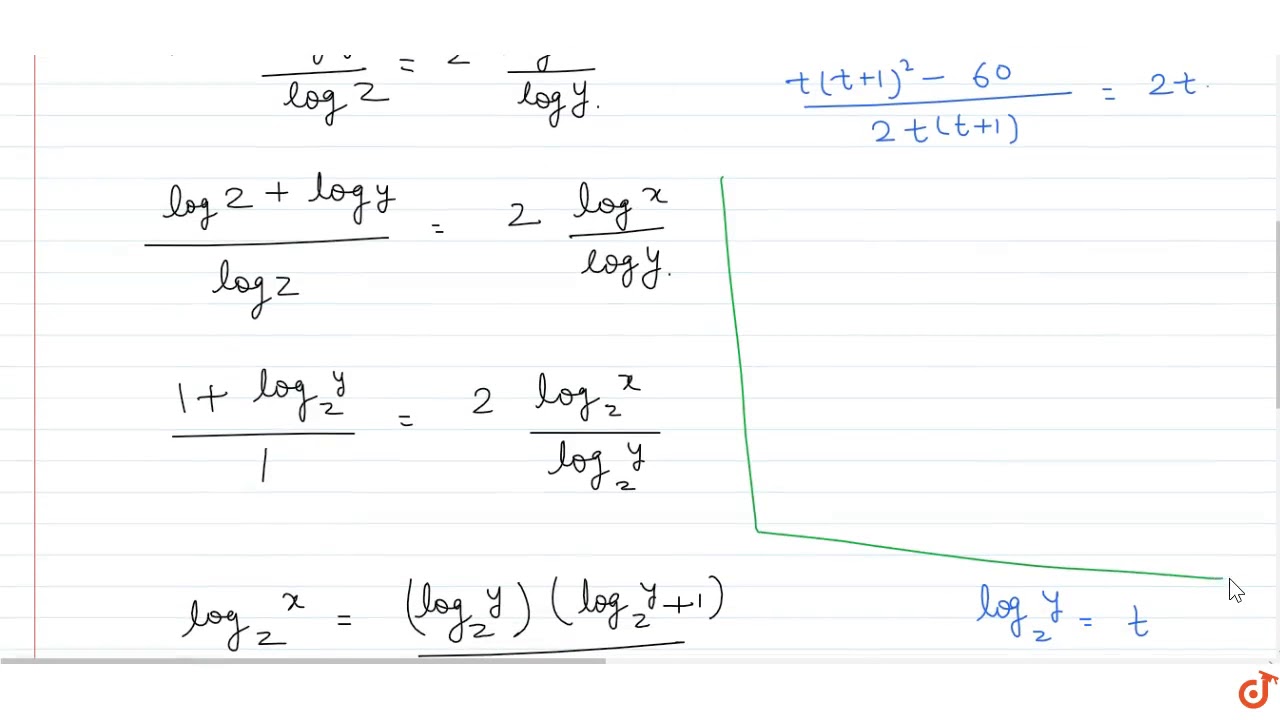 log 2 = 2 log y.
t(t+1)² - 60 / 2t(t+1) = 2t.
log 2 + log y / log 2 = 2 log x / log y.
1 + log₂ y / 1 = 2 log₂ x / log₂ y
log₂ x = (log₂ y) (log₂ y + 1)
log₂ y = t